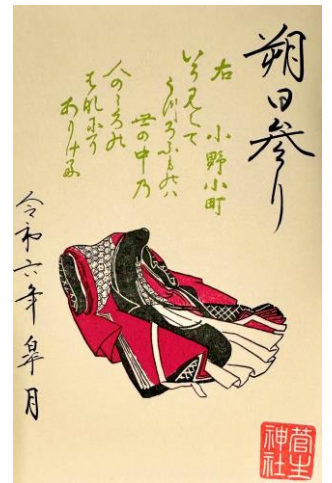 朔日参り
右　小野小町
いろ見えて
うつろふものハ
世の中乃
人のこゝろの
はなにそ
ありける
令和六年皐月
菅生
神社